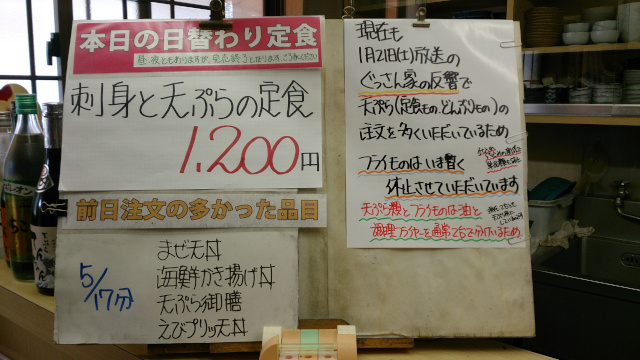 本日の日替わり定食
昼夜ともありますが、完売終了となります。ご了承ください
刺身と天ぷらの定食
1,200円
前日注文の多かった品目
5/17分
まぜ天丼
海鮮かき揚げ丼
天ぷら御膳
えびプリッ天丼
現在も
1月21日(土)放送の
ぐっさん家の反響で
天ぷら(定食もの、どんぶりもの)の
注文を多くいただいているため
フライものはいま暫く
休止させていただいています
天ぷら類とフライものは油と
調理フライヤーを通常でも分けているため